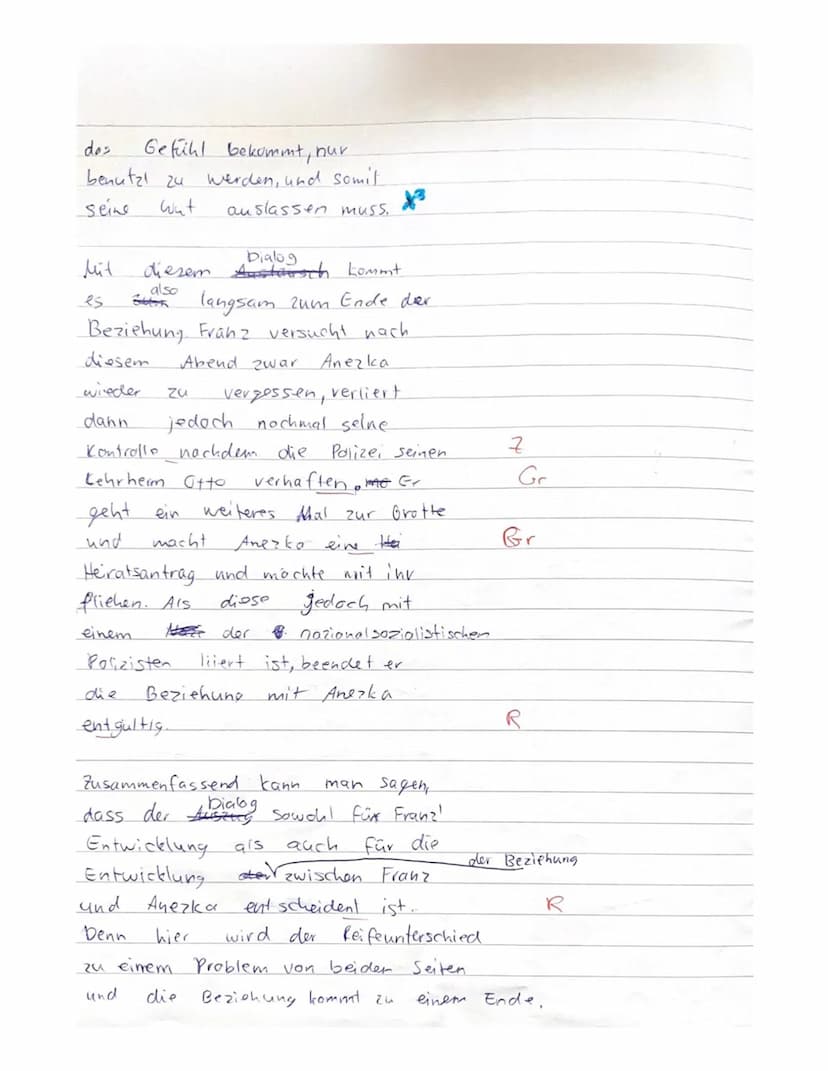 das Gefühl bekommt, nur
benutzt zu werden, und somit
seine Wut auslassen muss. X³
Mit diesem Austausch Dialog kommt
es also langsam zum Ende der
Beziehung. Franz versucht nach
diesem Abend zwar Anezka
wieder zu vergessen, verliert
dann jedoch nochmal seine
Kontrolle nachdem die Polizei seinen Z
Lehrherrn Otto verhaften. Er Gr
geht ein weiteres Mal zur Grotte
und macht Anezka eine Hei Gr
Heiratsantrag und möchte mit ihr
fliehen. Als diese jedoch mit
einem der nazionalsozialistischen
Polizisten liiert ist, beendet er
die Beziehung mit Anezka
entgültig. R
Zusammenfassend kann man sagen,
dass der Auszug Dialog sowohl für Franz'
Entwicklung als auch für die
Entwicklung der der Beziehung zwischen Franz
und Anezka entscheident ist. R
Denn hier wird der Reifeunterschied
zu einem Problem von beiden Seiten
und die Beziehung kommt zu einem Ende.